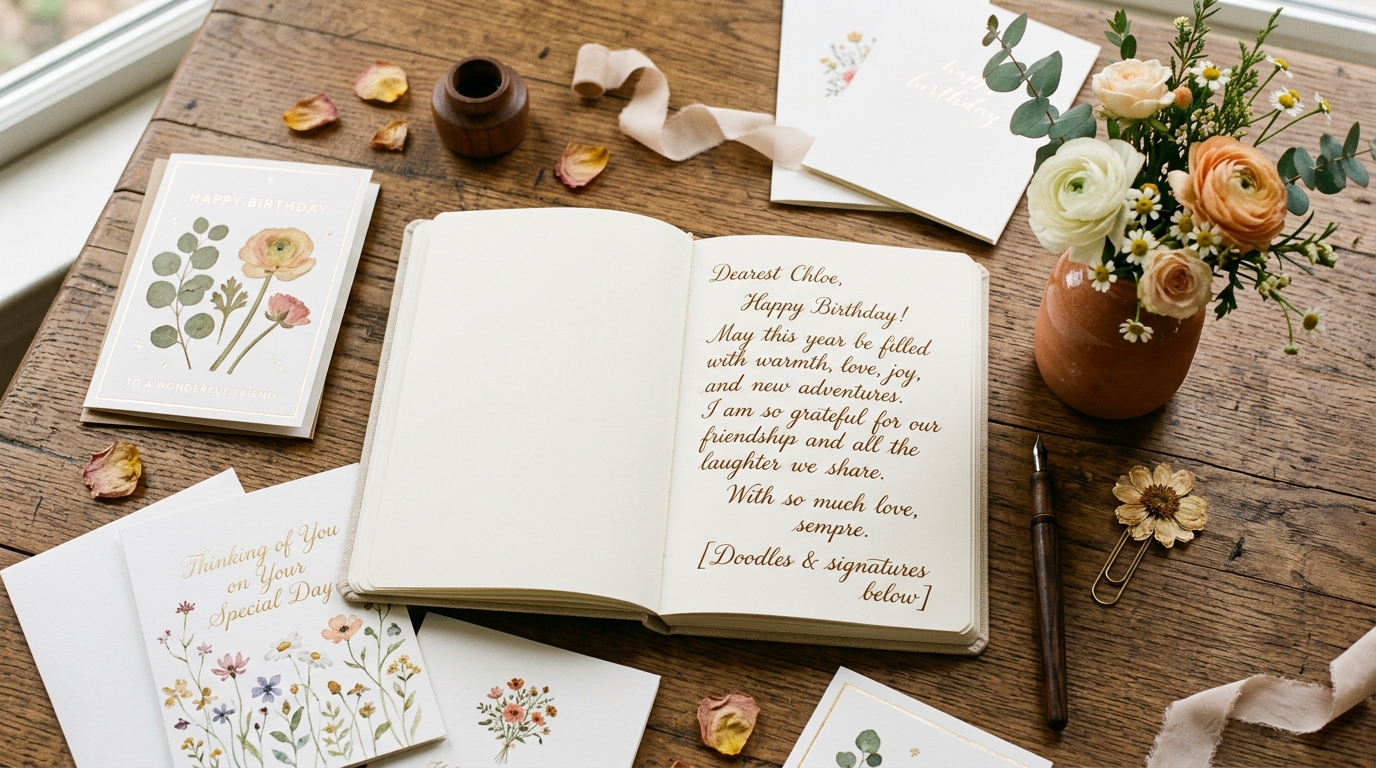 happy
birthday
HAPPY BIRTHDAY
TO A WONDERFUL FRIEND
Dearest Chloe,
Happy Birthday!
May this year be filled
with warmth, love, joy,
and new adventures.
I am so grateful for our
friendship and all the
laughter we share.
With so much love,
sempre.
[Doodles & signatures
below]
Thinking of You
on Your
Special Day